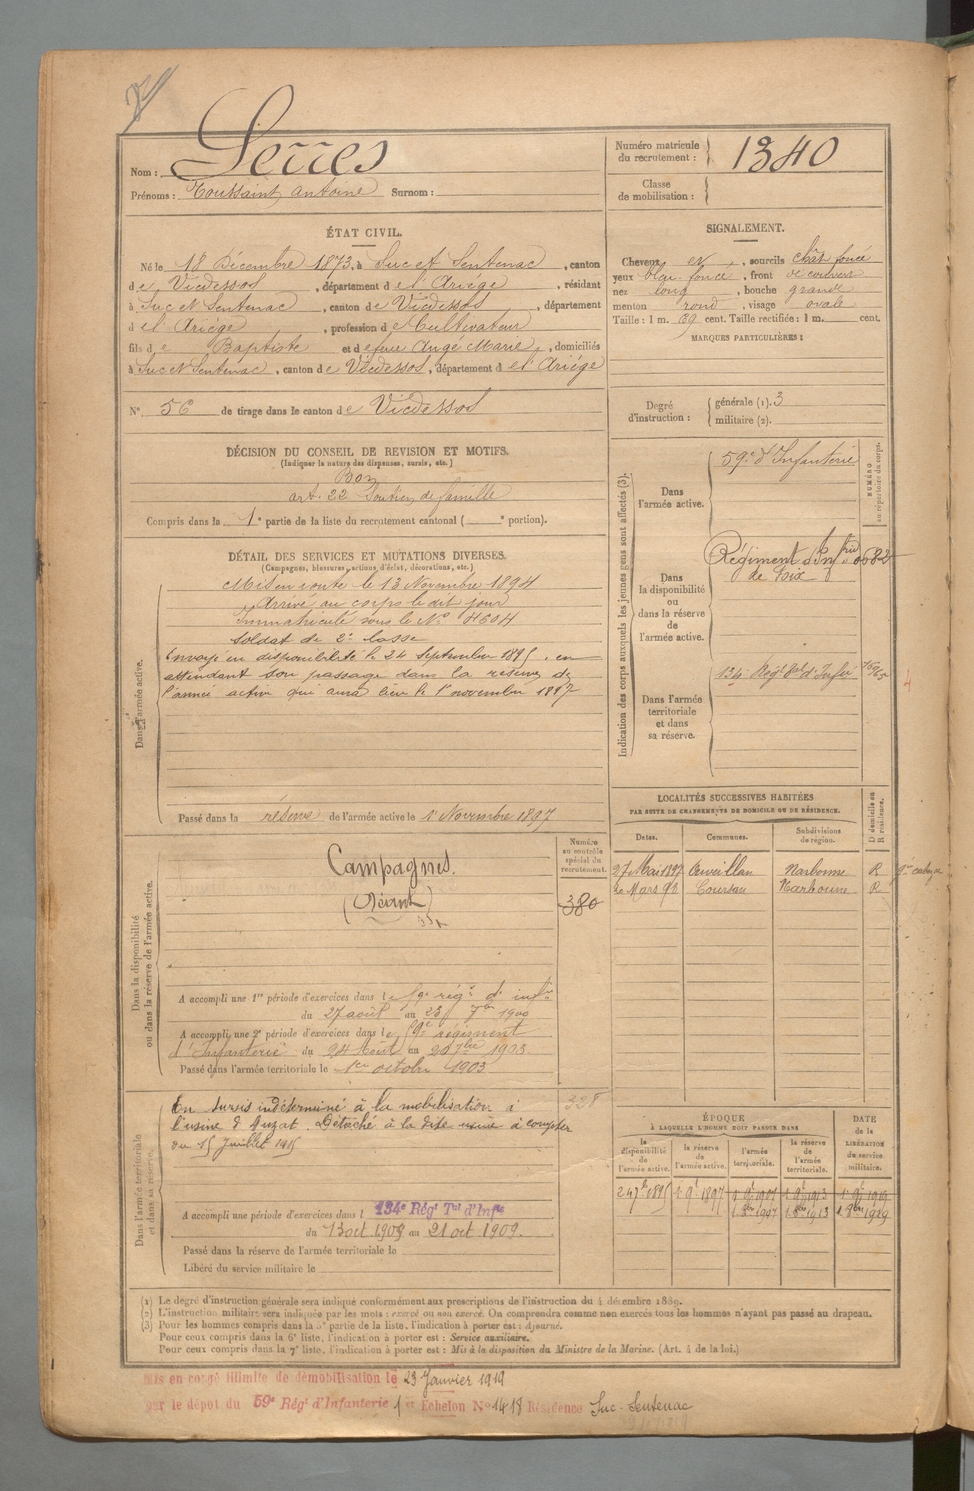 Nom : Serres
Prénoms : Toussaint Antoine Surnom :
Numéro matricule du recrutement : 1340
Classe de mobilisation :
ÉTAT CIVIL.
Né le 18 Décembre 1873, à Suc et Sentenac, canton
de Vicdessos, département de l'Ariège, résidant
à Suc et Sentenac, canton de Vicdessos, département
d el Ariége, profession de Cultivateur
fils de Baptiste et de feue Ange Marie, domiciliés
à Suc et Sentenac, canton de Vicdessos, département d el Ariége
N° 56 de tirage dans le canton de Vicdessos
SIGNALEMENT.
Cheveux et, sourcils chât foncé
yeux bleu foncé, front découvert
nez long, bouche grande
menton rond, visage ovale
Taille : 1 m. 59 cent. Taille rectifiée : 1 m. cent.
MARQUES PARTICULIÈRES :
Degré d'instruction : générale (1). 3
militaire (2).
DÉCISION DU CONSEIL DE REVISION ET MOTIFS.
(Indiquer la nature des dispenses, sursis, etc.)
Bon
art. 22 Soutien de famille
Compris dans la 1e partie de la liste du recrutement cantonal ( e portion).
DÉTAIL DES SERVICES ET MUTATIONS DIVERSES.
(Campagnes, blessures, actions d'éclat, décorations, etc.)
Dans l'armée active.
Mis en route le 13 Novembre 1894
Arrivé au corps le dit jour
Immatriculé sous le N° 4604
Soldat de 2e classe
Envoyé en disponibilité le 24 Septembre 1895, en
attendant son passage dans la réserve de
l'armée active qui aura lieu le 1er novembre 1897
Passé dans la réserve de l'armée active le 1er Novembre 1897
Indication des corps auxquels les jeunes gens sont affectés (3).
NUMÉRO au répertoire du corps.
Dans l'armée active.
59e d'Infanterie
Dans la disponibilité ou dans la réserve de l'armée active.
Régiment d'Infrie 0682
de Foix
Dans l'armée territoriale et dans sa réserve.
134e Régt tal d'Infie
LOCALITÉS SUCCESSIVES HABITÉES
PAR SUITE DE CHANGEMENTS DE DOMICILE OU DE RÉSIDENCE.
Dates. Communes. Subdivisions de région. D domicile ou R résidence.
27 Mai 1897 Cuveillan Narbonne R
Mars 98 Coursan Narbonne R
Dans la disponibilité ou dans la réserve de l'armée active.
Numéro au contrôle spécial du recrutement.
Campagnes.
(Néant)
380
A accompli une 1re période d'exercices dans le 59e régt d'infie
du 27 août au 23 7bre 1900
A accompli une 2e période d'exercices dans le 59e régiment
d'Infanterie du 24 Août au 20 7bre 1903
Passé dans l'armée territoriale le 1er octobre 1903
Dans l'armée territoriale et dans sa réserve.
En sursis indéterminé à la mobilisation à
l'usine d'Auzat. Détaché à la dite usine à compter
du 15 Juillet 1915
A accompli une période d'exercices dans l 134e Régt Tal d'Infie
du 13 oct 1909 au 21 oct 1909.
Passé dans la réserve de l'armée territoriale le
Libéré du service militaire le
ÉPOQUE
À LAQUELLE L'HOMME DOIT PASSER DANS
la disponibilité de l'armée active.
la réserve de l'armée active.
l'armée territoriale.
la réserve de l'armée territoriale.
DATE de la LIBÉRATION du service militaire.
(1) Le degré d'instruction générale sera indiqué conformément aux prescriptions de l'instruction du 4 décembre 1889.
(2) L'instruction militaire sera indiquée par les mots : exercé ou non exercé. On comprendra comme non exercés tous les hommes n'ayant pas passé au drapeau.
(3) Pour les hommes compris dans la 5e partie de la liste, l'indication à porter est : Ajourné.
Pour ceux compris dans la 6e liste, l'indication à porter est : Service auxiliaire.
Pour ceux compris dans la 7e liste, l'indication à porter est : Mis à la disposition du Ministre de la Marine. (Art. 4 de la loi.)
Mis en congé illimité de démobilisation le 23 Janvier 1919
par le dépôt du 59e Régt d'Infanterie 1er Echelon N° 1418 Résidence Suc-Sentenac